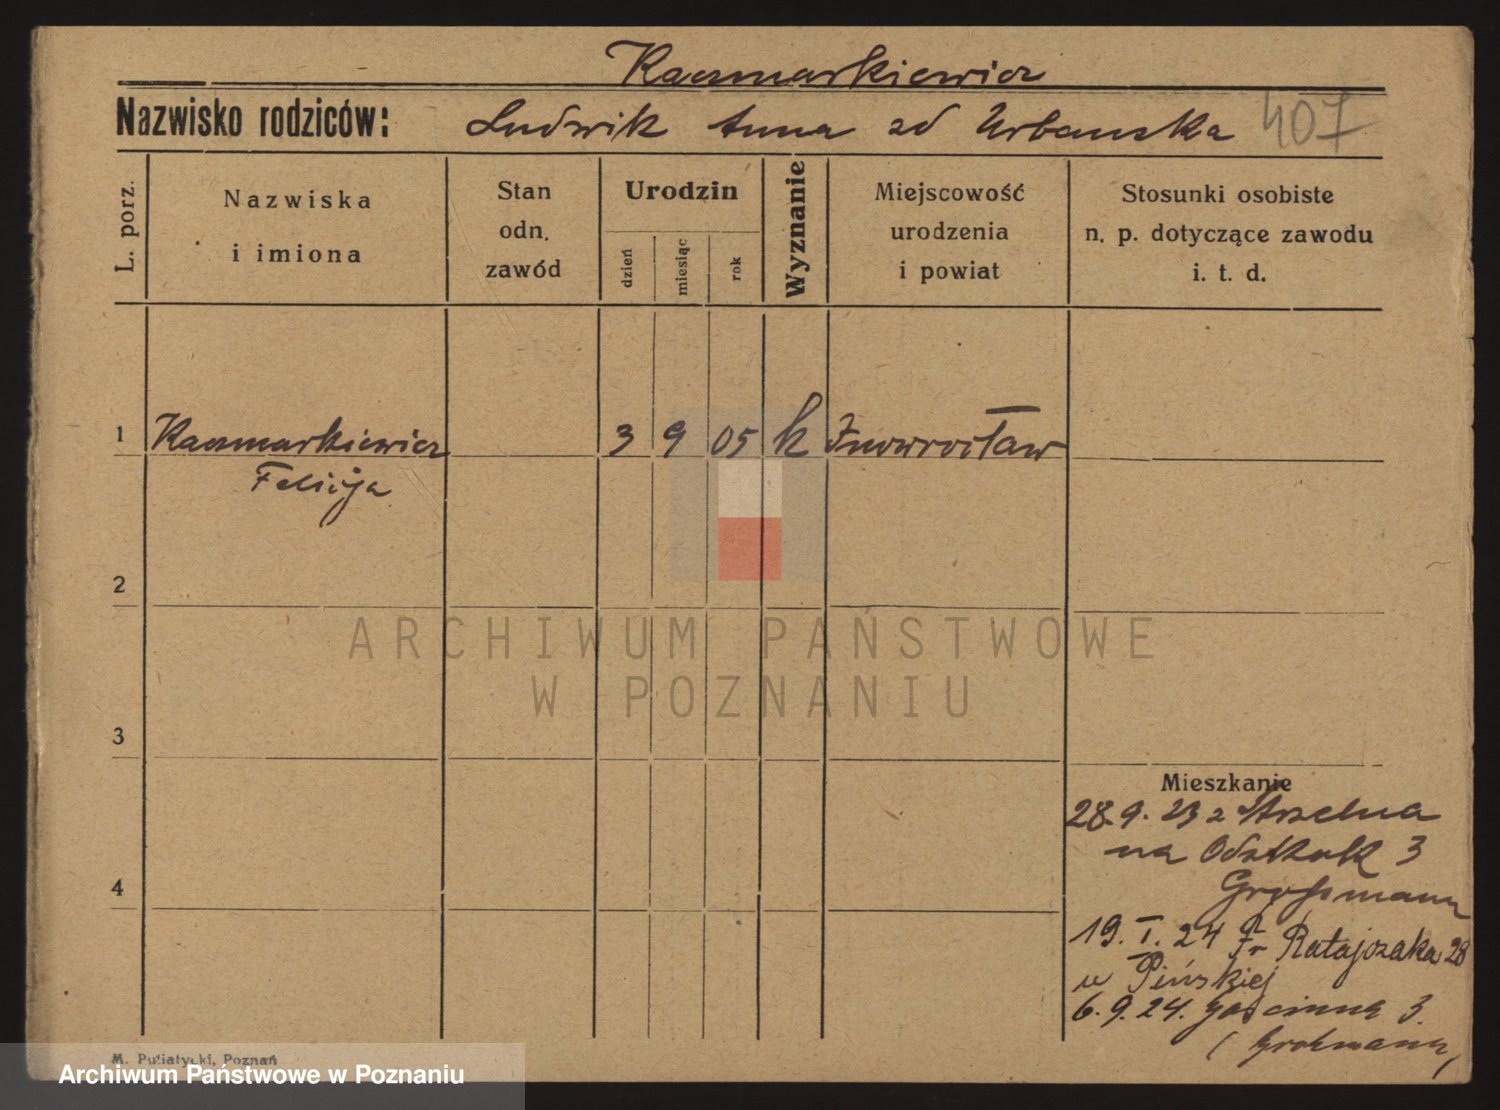 Kaczmarkiewicz
Nazwisko rodziców: Ludwik Anna zd Urbańska 407
L. porz.
Nazwiska
i imiona
Stan
odn.
zawód
Urodzin
dzień
miesiąc
rok
Wyznanie
Miejscowość
urodzenia
i powiat
Stosunki osobiste
n. p. dotyczące zawodu
i. t. d.
1 Kaczmarkiewicz 3 9 05 k Inowrocław
Felicija
2
ARCHIWUM PAŃSTWOWE
W POZNANIU
3
Mieszkanie
28.9.23 z Strzelna
na 3
4
19. I. 24 Fr Ratajczaka 28
u Pińskiej
6.9.24. Gościnna 3.
(Grohmann)
M. Putiatycki, Poznań
Archiwum Państwowe w Poznaniu